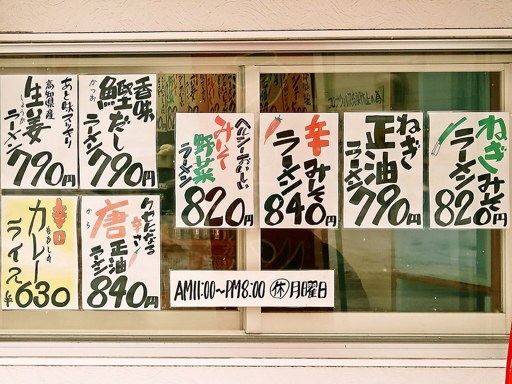 あと味すっきり
高知県産
生姜
しょうが
ラーメン
790円
香味
鰹だし
かつお
ラーメン
790円
ヘルシーおいしい
みそ
野菜
ラーメン
820円
辛みそ
ラーメン
840円
ねぎ
正油
ラーメン
790円
ねぎみそ
ラーメン
820円
辛口
カレー
ライス
¥630
クセになる
辛さ!
唐
から
正油
ラーメン
840円
AM11:00~PM8:00 休 月曜日